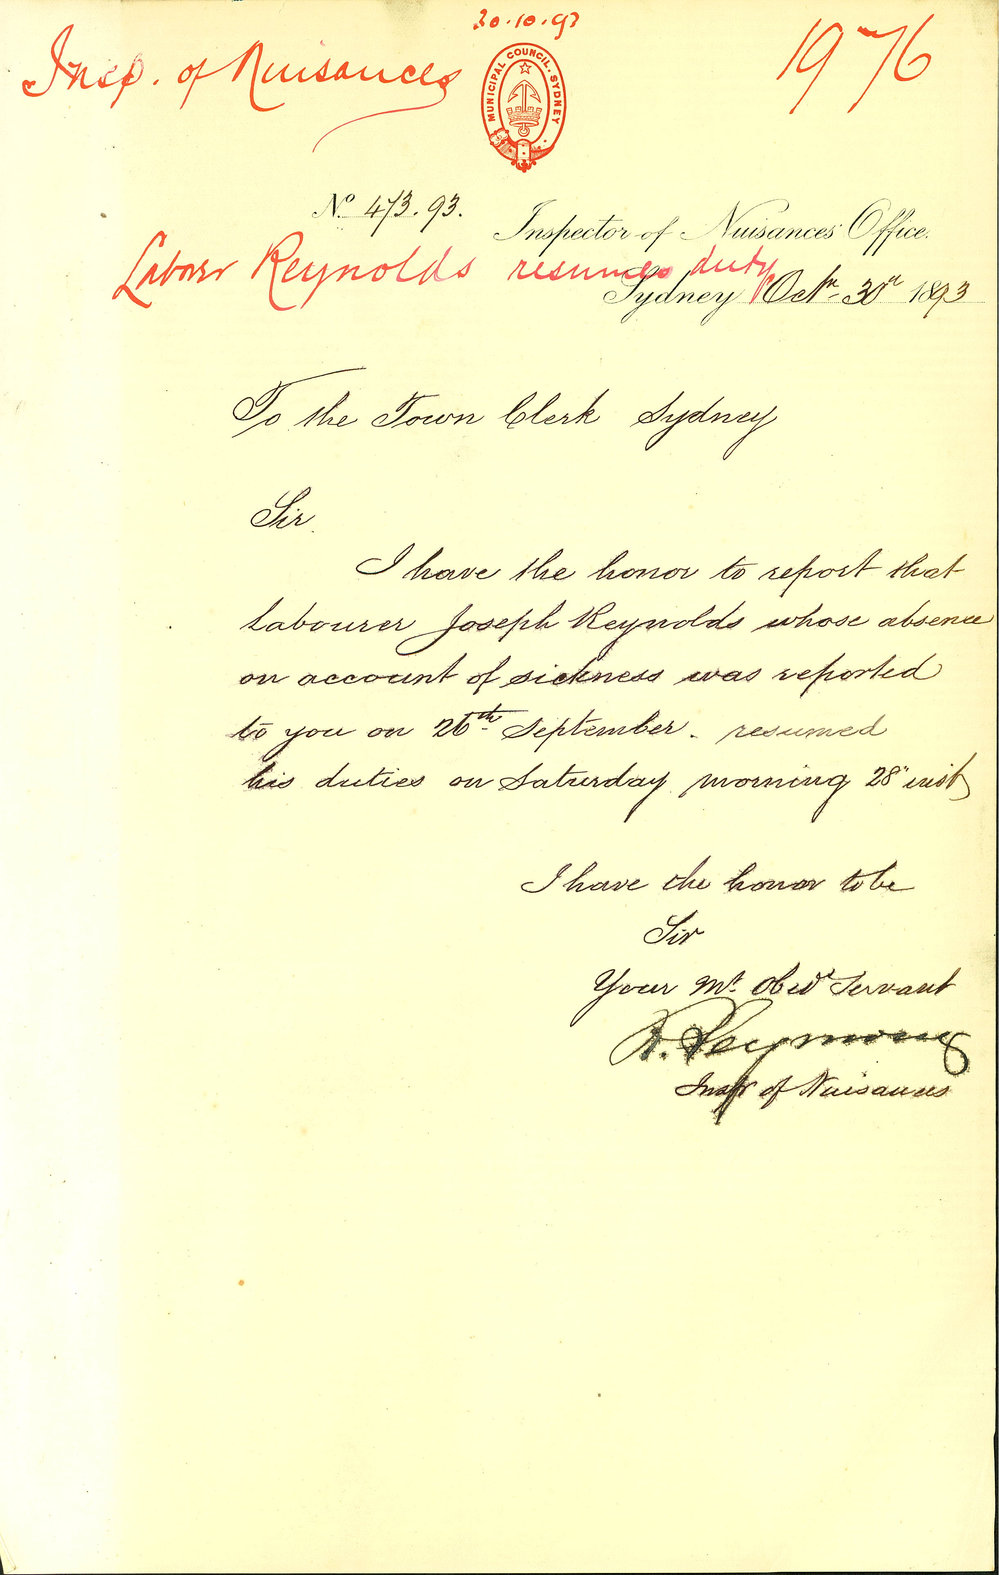 30.10.93
Insp. of Nuisances
1976
MUNICIPAL COUNCIL. SYDNEY
No. 473.93.
Inspector of Nuisances Office.
Labourer Reynolds resumes duty
Sydney Octr. 30th 1893
To the Town Clerk Sydney
Sir
I have the honor to report that
Labourer Joseph Reynolds whose absence
on account of sickness was reported
to you on 26th September. resumed
his duties on Saturday morning 28" inst
I have the honor to be
Sir
Your Mt. Obedt Servant
Seymour
Inspr of Nuisances